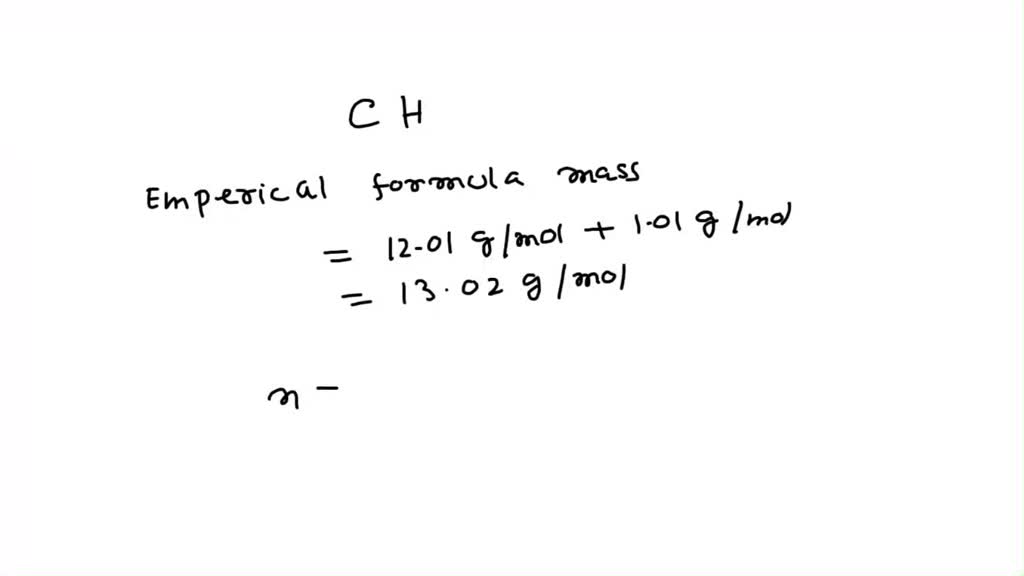 C H
Emperical formula mass
= 12.01 g/mol + 1.01 g/mol
= 13.02 g/mol
n -